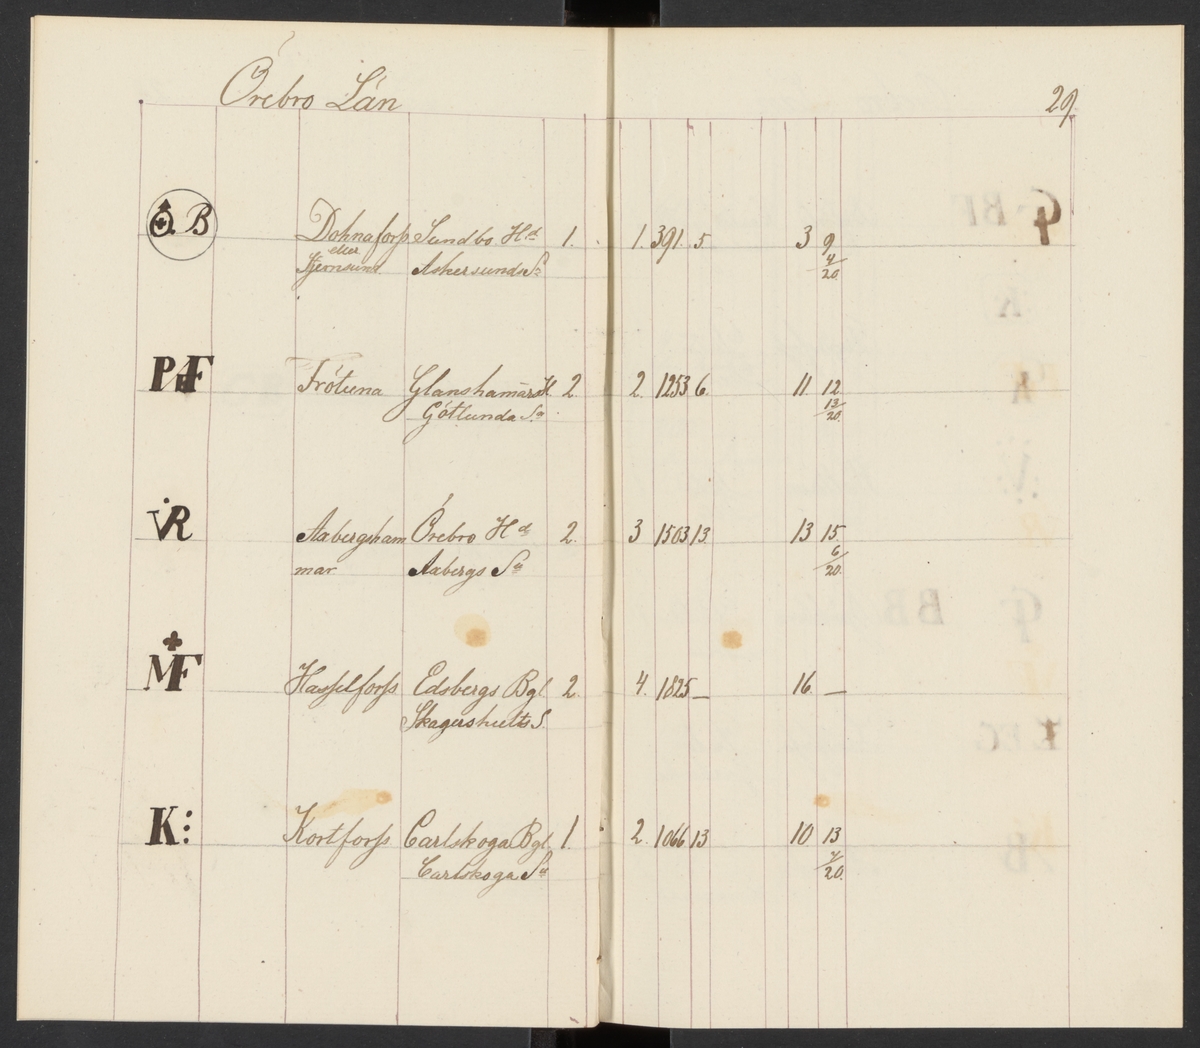 Örebro Län
29.
B Dohnaforss Sundbo Hd 1. 1. 391. 5. 3 9
eller 4/20.
Askersunds Sn
PAF Frötuna Glanshamars H. 2. 2. 1253 6. 11. 12.
Götlunda Sn 13/20.
VR Axbergsham Örebro Hd 2. 3 1503 13. 13 15.
mar Axbergs Sn 6/20.
MF Hasselforss Edsbergs Bgl. 2. 4. 1825 — 16. —
Skagershults S.
K: Kortforss Carlskoga Bgl. 1. 2. 1066 13 10 13
Carlskoga Sn 7/20.